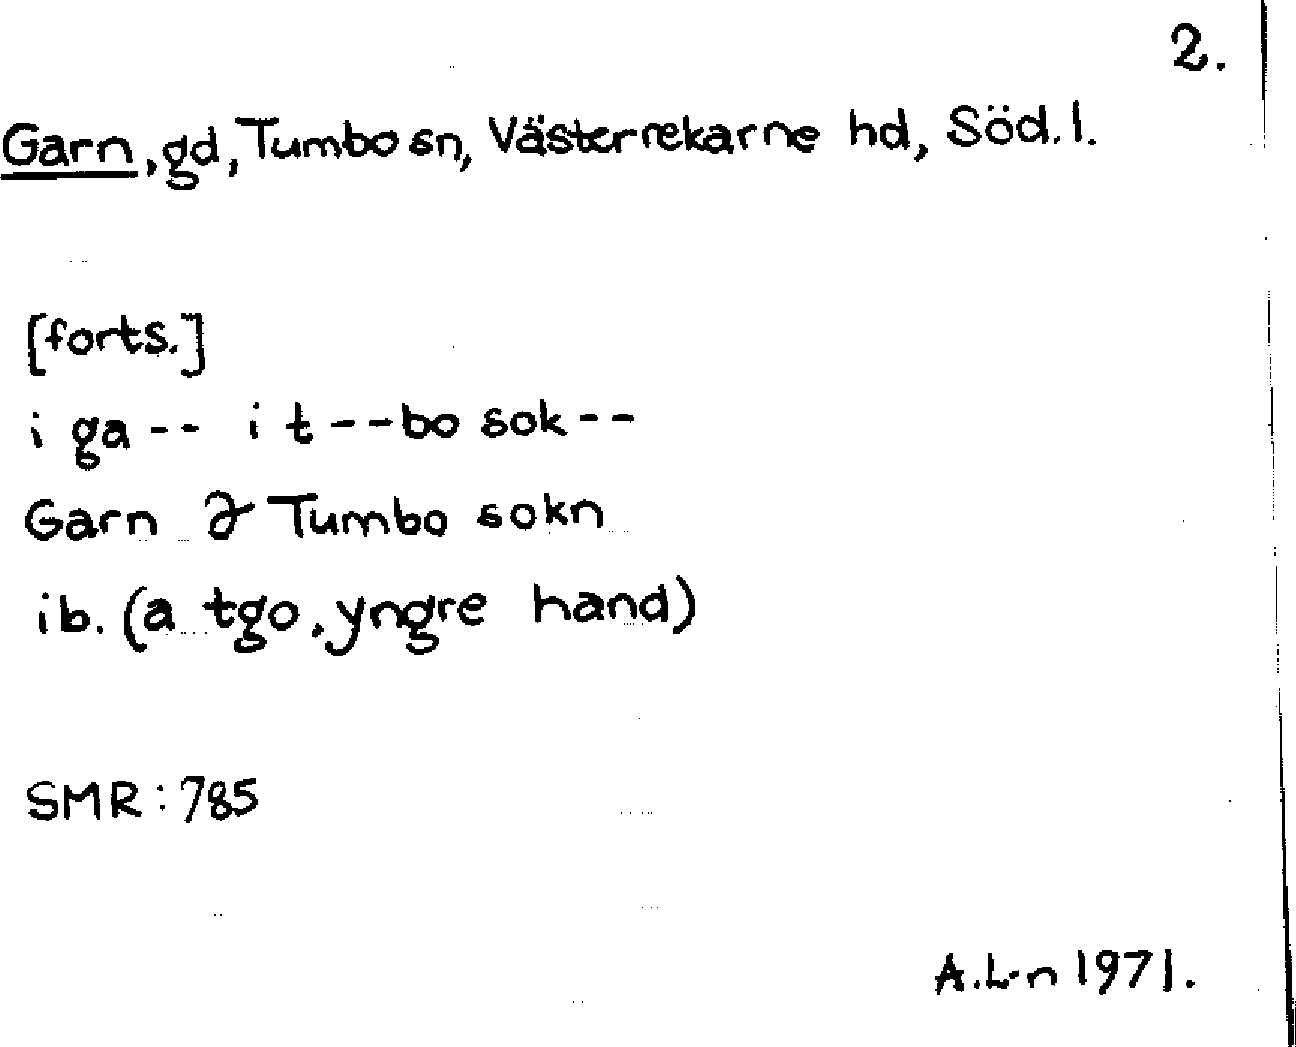 2.
Garn, gd, Tumbo sn, Västerrekarne hd, Söd. l.
[forts.]
i ga-- i t--bo sok--
Garn Tumbo sokn
ib. (a tgo, yngre hand)
SMR: 785
A.L-n 1971.